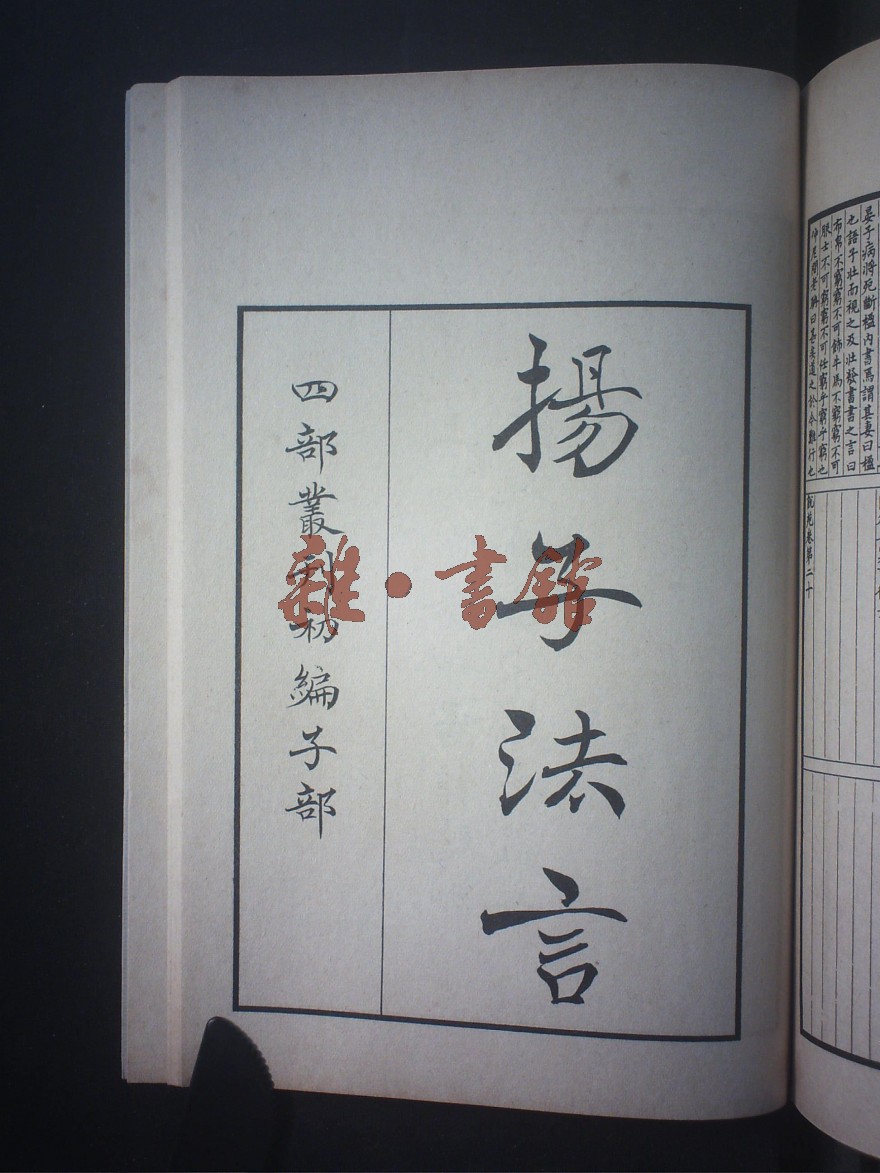 晏子病將死斷楹內書焉謂其妻曰楹
也語子壯而視之及壯發書書之言曰
布帛不窮窮不可飾牛馬不窮窮不可
服士不可窮窮不可任窮乎窮乎窮也
仲尼問老聃曰甚矣道之於今難行也
說苑卷第二十
揚子法言
四部叢刊初編子部
雜·書館